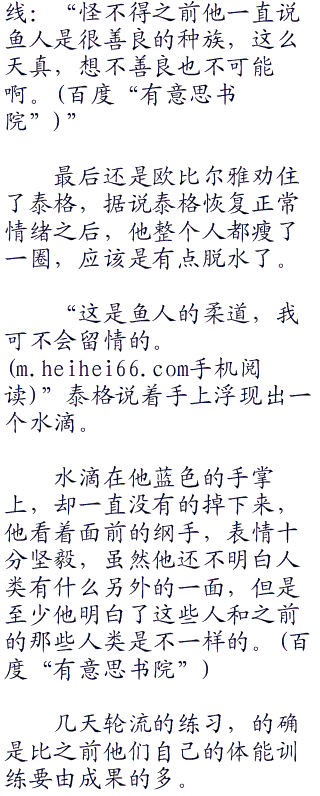 线：“怪不得之前他一直说
鱼人是很善良的种族，这么
天真，想不善良也不可能
啊。(百度“有意思书
院”)”
最后还是欧比尔雅劝住
了泰格，据说泰格恢复正常
情绪之后，他整个人都瘦了
一圈，应该是有点脱水了。
“这是鱼人的柔道，我
可不会留情的。
(m.heihei66.com手机阅
读)”泰格说着手上浮现出一
个水滴。
水滴在他蓝色的手掌
上，却一直没有的掉下来，
他看着面前的纲手，表情十
分坚毅，虽然他还不明白人
类有什么另外的一面，但是
至少他明白了这些人和之前
的那些人类是不一样的。(百
度“有意思书院”)
几天轮流的练习，的确
是比之前他们自己的体能训
练要由成果的多。